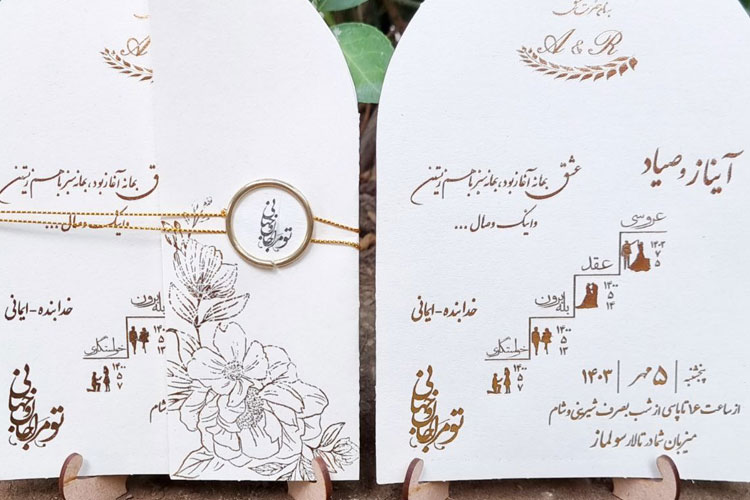 بنام حضرت عشق
A & R
آیناز و صیاد
عشق بهانه آغاز بود، بهانه سبز با هم زیستن
و اینک وصال ...
عروسی
۱۴۰۳
۷
۵
عقد
۱۴۰۰
۵
۱۴
بله برون
۱۴۰۰
۵
۱۳
خواستگاری
۱۴۰۰
۵
۷
خدابنده - ایمانی
تو مرا جان و جهانی
پنجشنبه | ۵ مهر | ۱۴۰۳
از ساعت ۱۶ تا پاسی از شب بصرف شیرینی و شام
میزبان شما در تالار سولماز
A &
ق بهانه آغاز بود، بهانه سبز با هم زیستن
و اینک وصال ...
بله برون
۱۴۰۰
۵
۱۳
خواستگاری
۱۴۰۰
۵
۷
خدابنده - ایمانی
تو مرا جان و جهانی
شام
تو مرا جان و جهانی